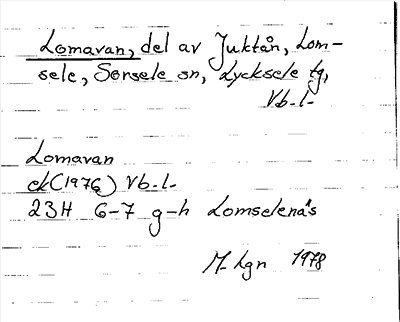 Lomavan, del av Juktån, Lom-
sele, Sorsele sn, Lycksele tg,
Vb. l.
Lomavan
ek (1976) Vb. l.
23H 6-7 g-h Lomselenäs
M. Lgn 1978